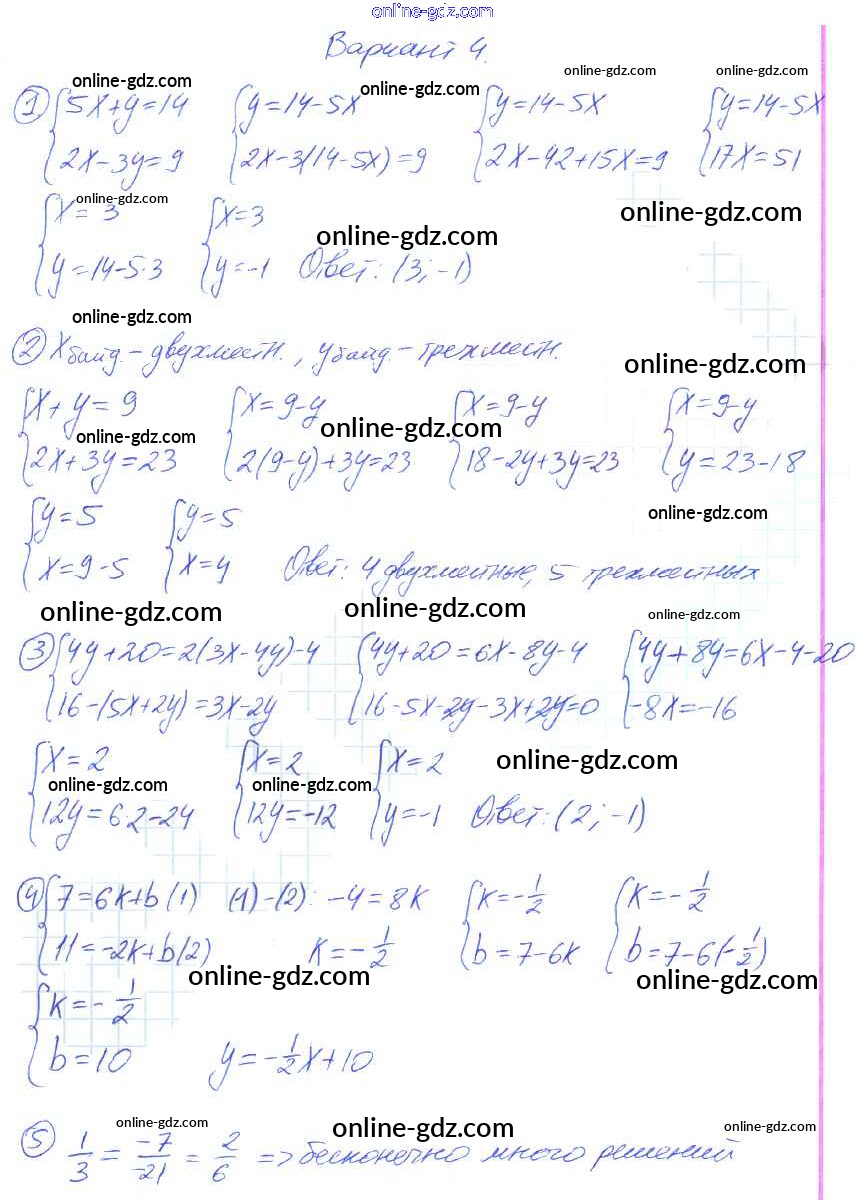 online-gdz.com
Вариант 4.
online-gdz.com online-gdz.com online-gdz.com online-gdz.com
① {5x+y=14 {y=14-5x {y=14-5x {y=14-5x
2x-3y=9 2x-3(14-5x)=9 2x-42+15x=9 17x=51
online-gdz.com online-gdz.com
{x=3 {x=3
online-gdz.com
y=14-5·3 y=-1 Ответ: (3; -1)
online-gdz.com
② x байд.-двухместн., y байд.-трехместн.
online-gdz.com
{x+y=9 {x=9-y {x=9-y {x=9-y
online-gdz.com online-gdz.com
2x+3y=23 2(9-y)+3y=23 18-2y+3y=23 y=23-18
{y=5 {y=5
online-gdz.com
x=9-5 x=4 Ответ: 4 двухместные, 5 трехместных
online-gdz.com online-gdz.com online-gdz.com
③ {4y+20=2(3x-4y)-4 {4y+20=6x-8y-4 {4y+8y=6x-4-20
16-(5x+2y)=3x-2y 16-5x-2y-3x+2y=0 -8x=-16
{x=2 {x=2 {x=2
online-gdz.com
online-gdz.com online-gdz.com
12y=6·2-24 12y=-12 y=-1 Ответ: (2; -1)
④ {7=6k+b (1) (1)-(2): -4=8k {k=-1/2 {k=-1/2
11=-2k+b (2) k=-1/2 b=7-6k b=7-6(-1/2)
online-gdz.com online-gdz.com
{k=-1/2
b=10 y=-1/2x+10
online-gdz.com online-gdz.com online-gdz.com
⑤ 1/3 = -7/-21 = 2/6 => бесконечно много решений